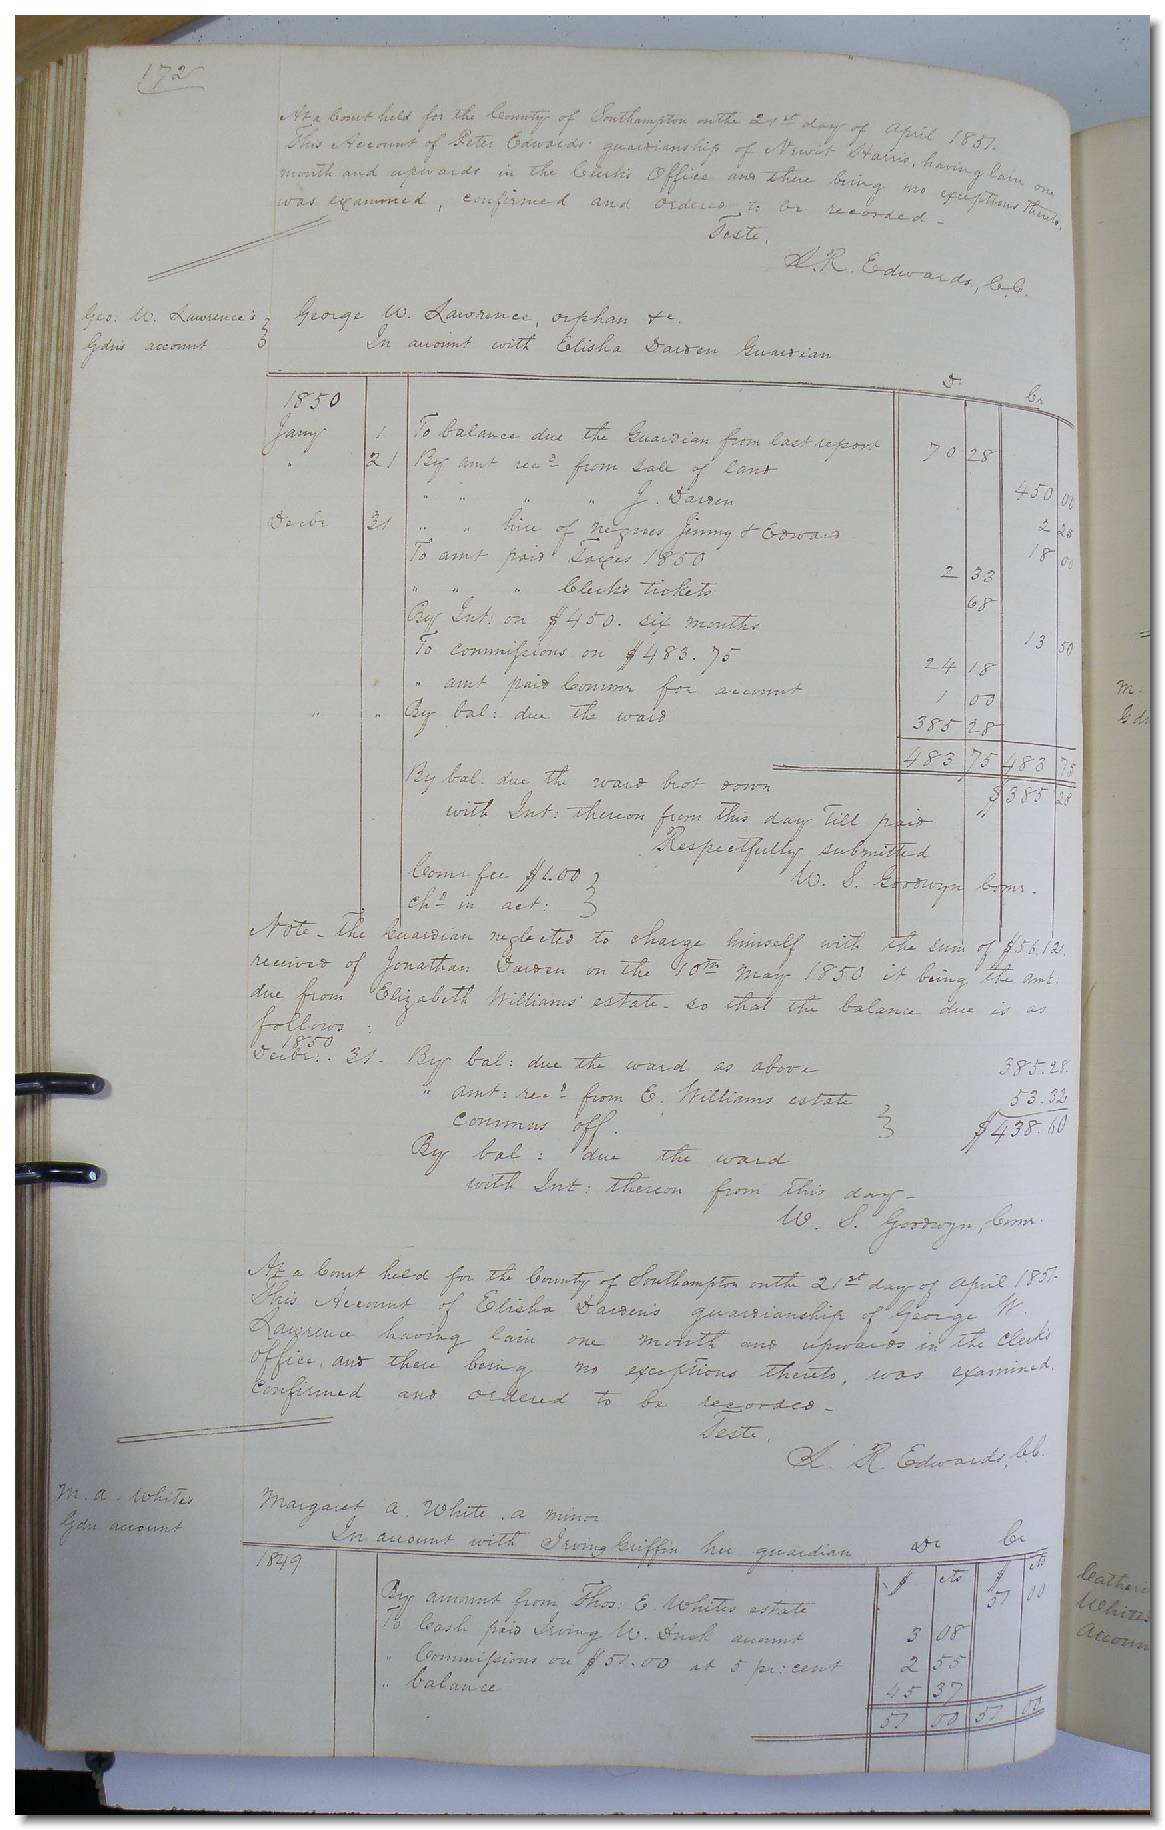 172
At a Court held for the County of Southampton on the 21st day of April 1851.
This Account of Peter Edwards' guardianship of Newit Harris, having lain one
month and upwards in the Clerk's Office and there being no exceptions thereto,
was examined, confirmed and ordered to be recorded -
Teste,
L. R. Edwards, C.C.
Geo. W. Lawrence's
Gdn's account
George W. Lawrence, orphan &c.
In account with Elisha Darden Guardian
Dr Cr
1850
Jany 1 To balance due the Guardian from last report 70 28
" 21 By amt recd from sale of land 450 00
" " " " J. Darden 2 25
Decbr 31 " " hire of negroes Jinny & Edward 18 00
To amt paid Taxes 1850 2 33
" " " Clerks tickets 68
By Int: on $450. six months 13 50
To commissions on $483.75 24 18
" amt paid Commr for account 1 00
" " By bal: due the ward 385 28
483 75 483 75
By bal: due the ward brot down $385 28
with Int: thereon from this day till paid
Respectfully submitted
W. S. Goodwyn Comr.
Comr fee $1.00
chd in act:
Note - the Guardian neglected to charge himself with the sum of $56.12.
received of Jonathan Darden on the 10th May 1850 it being the amt.
due from Elizabeth Williams' estate - so that the balance due is as
follows:
1850
Decbr. 31. By bal: due the ward as above 385.28.
" amt: recd from E. Williams estate 53.32
commns off. $438.60
By bal: due the ward
with Int: thereon from this day -
W. S. Goodwyn, Comr.
At a Court held for the County of Southampton on the 21st day of April 1851.
This Account of Elisha Darden's guardianship of George W.
Lawrence having lain one month and upwards in the Clerks
Office, and there being no exceptions thereto, was examined,
confirmed and ordered to be recorded -
Teste,
L. R. Edwards, C.C.
M. A. Whites
Gdn account
Margaret A. White, a minor
In account with Irving Griffin her guardian Dr Cr
1849 $ cts $ cts
By amount from Thos: E. Whites estate 51 00
To Cash paid Irving W. Duck account 3 08
" Commissions on $51.00 at 5 pr: cent 2 55
" balance 45 37
51 00 51 00
M.
Gdn
Catheri
Whites
Accoun